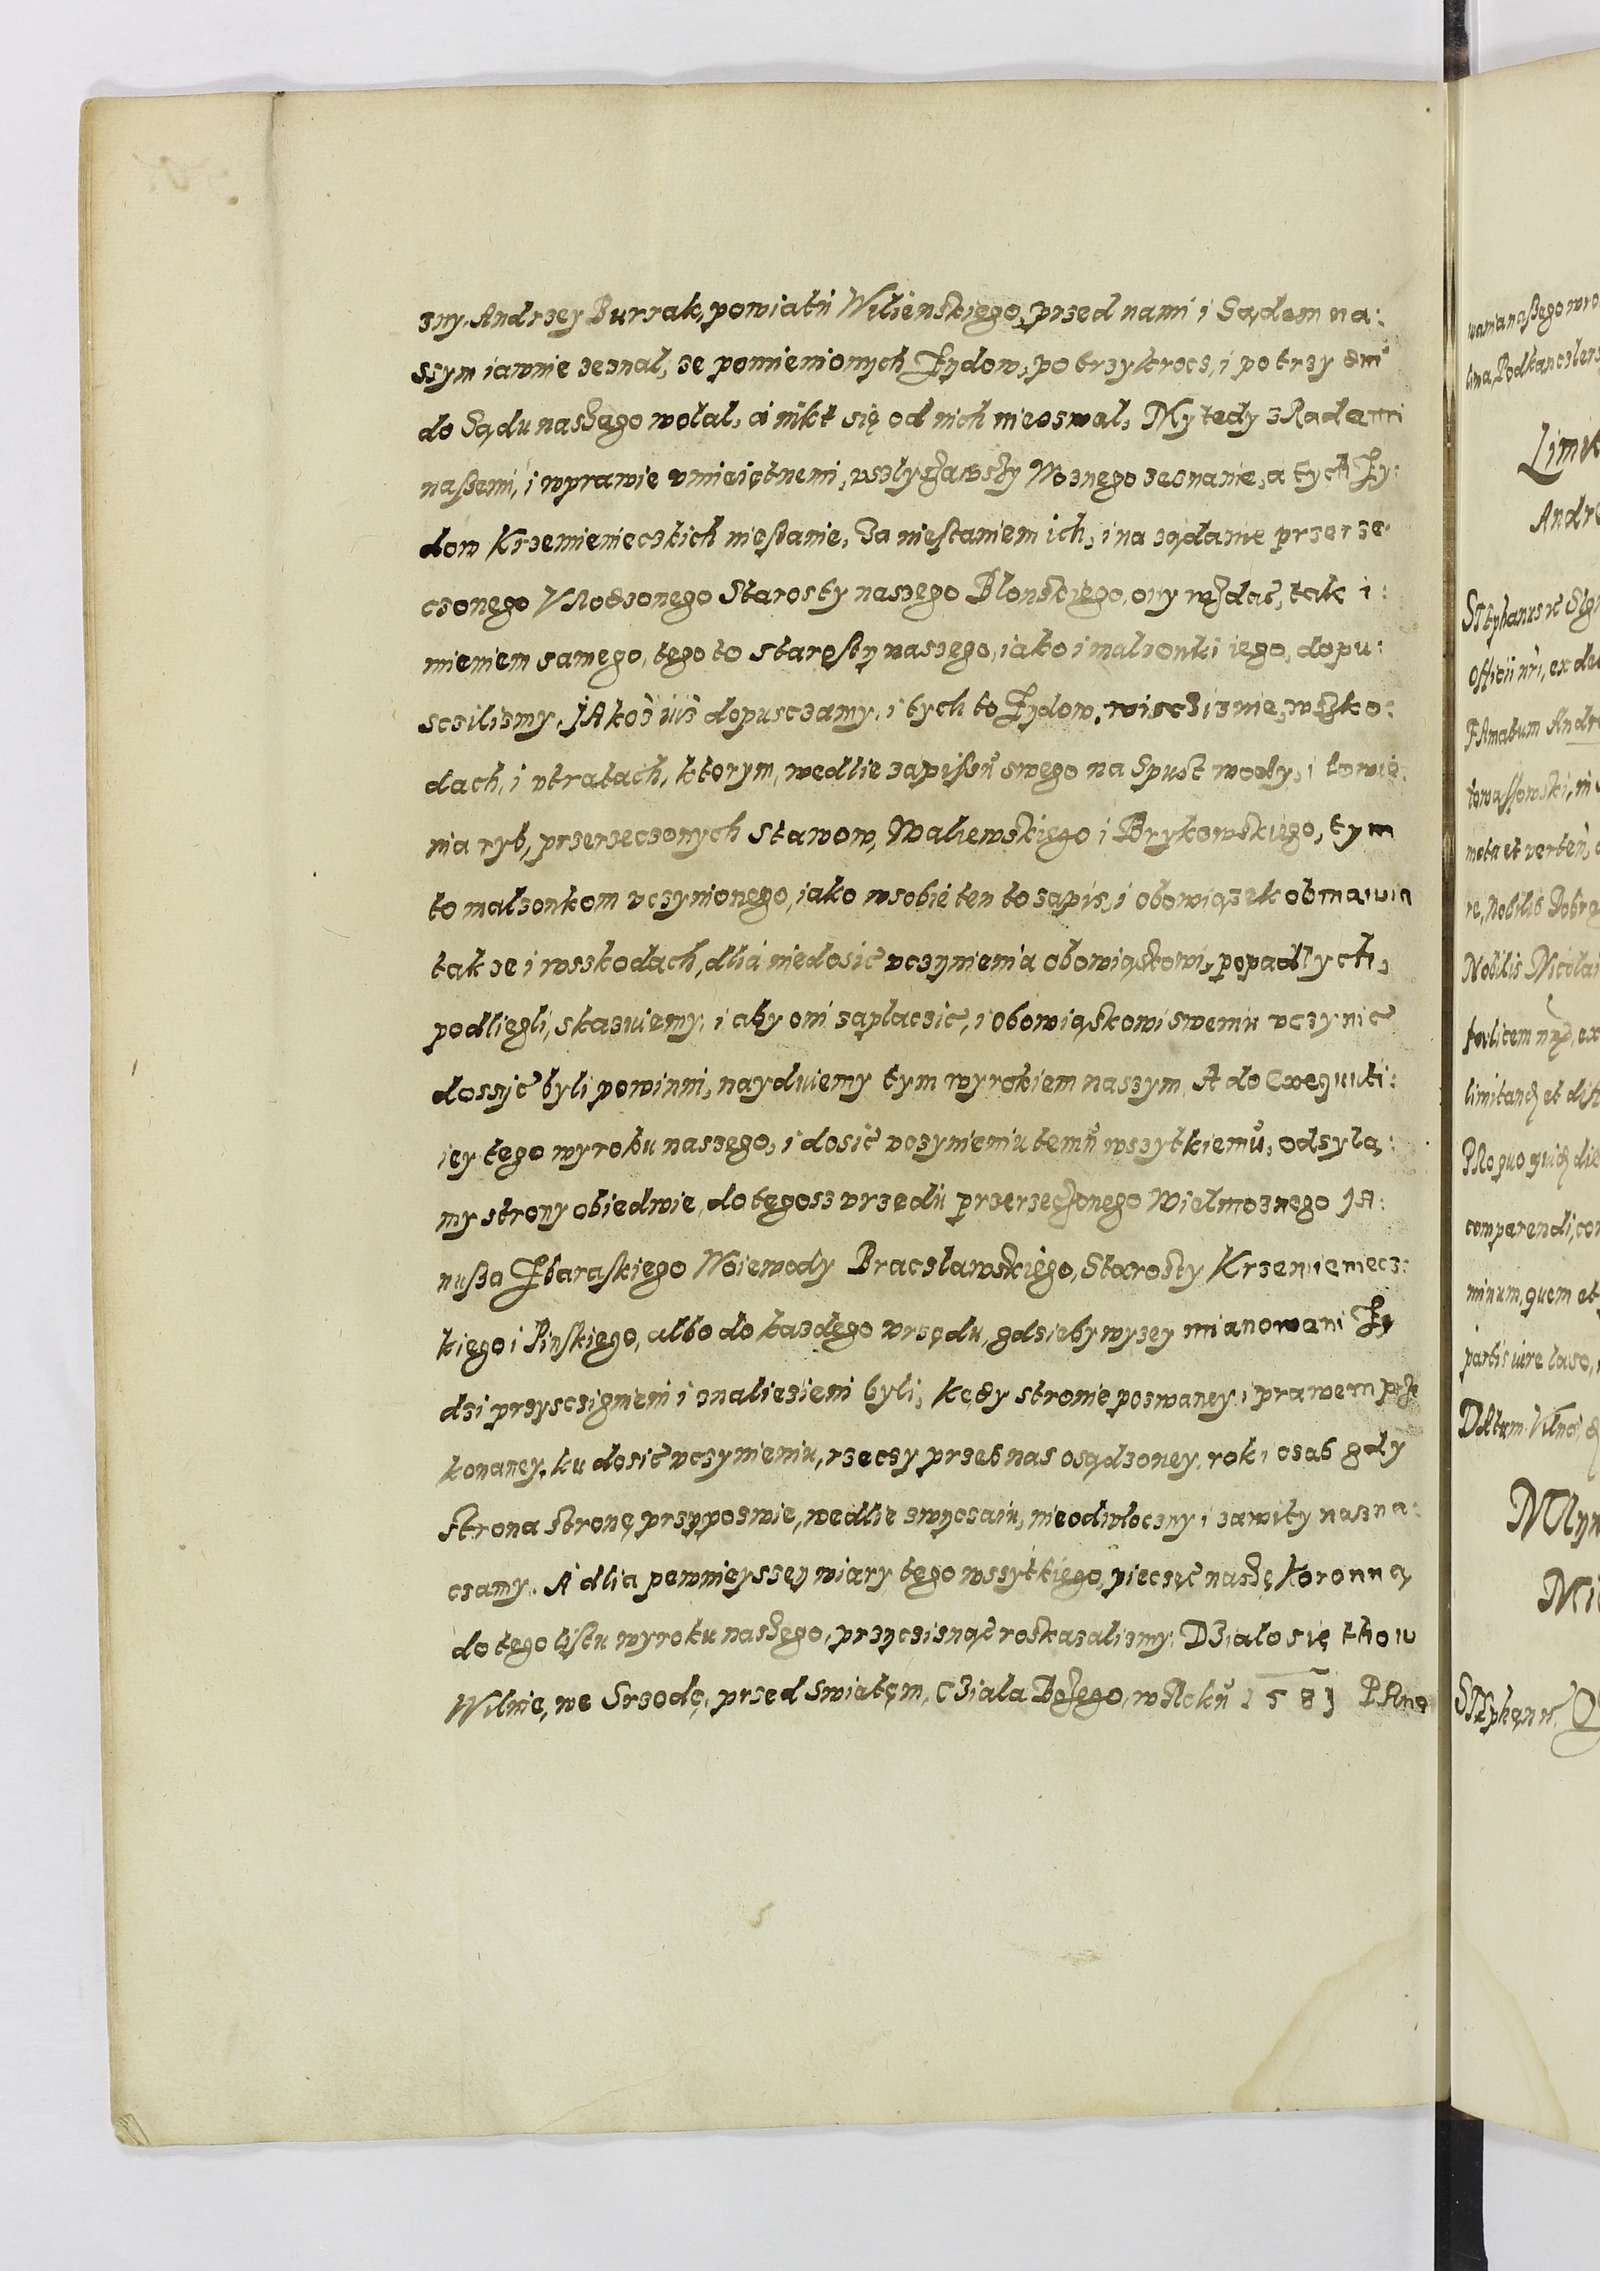 zny, Andrzey Burrak, powiatu Wilienskiego, przed nami i Sądem na:
szym iawnie zeznal, że pomienionych Żydow, po trzykrocz, i po trzy dni
do Sądu naszego wolal, a nikt się od nich nieozwal, My tedy z Radami
naszemi, i wprawie vmieiętnemi, vszlyszawszy Woznego zeznanie, a tych Ży:
dow Krzemienieczkich niestanie, Za niestaniem ich, i na ządanie przerze:
czonego Vrodzonego Starosty naszego Blonskiego, ony wzdać, tak i:
mieniem samego, tego to starosty naszego, iako i malzonki iego, dopu:
scilizmy, JAkoż iuż dopuszczamy, i tych to Żydow, wiscziznie, w szko:
dach, i vtratach, ktorym, wedlie zapisu swego na Spust wody, i lowie:
nia ryb, przerzeczonych Stawow, Waliewskiego i Brykowskiego, tym
to malzonkom vczynionego, iako wsobie ten to zapis, i obowiązek obmawia
tak ze i wszkodach, dlia niedosić vczynienia obowiąskowi, popadlych,
podliegli, skazuiemy, i aby oni zaplaczić, i obowiąskowi swemu vczynić
dossyć byli powinni, nayduiemy tym wyrokiem naszym, A do Exequuti:
iey tego wyroku naszego, i dosić vczynieniu temu wszytkiemu, odsyla:
my strony obiedwie, do tegosz vrzedu przerzeczonego Wielmoznego JA:
nusza Zbaraskiego Woiewody Braczlawskiego, Starosty Krzemieniecz:
kiego i Pinskiego, albo do kazdego vrzędu, gdzieby wyzey mianowani Ży
dzi przysczignieni i znaliezieni byli, kędy stronie pozwaney, i prawem prze
konaney, ku dosić vczynieniu, rzeczy przez nas osądzoney, rok i czas gdy
strona stronę przypozwie, wedlie zwyczaiu, nieodwloczny i zawity nazna:
czamy. A dlia pewnieyszey wiary tego wszytkiego, pieczęć naszę Koronną
do tego listu wyroku naszego, przyczisnąć roskazalizmy. DZialo się thow
Wilnie, we Srzodę, przed Swiatem, CZiala Bożego, w Roku 1581 PAna
waniа naszego wro
lina, Podkanczlers
Limit
Andre
STephanus
Officii nri, ex de
FAmatum Andre
re, Nobilis Dobro
Nobilis Nicolai
limitand et dist
PRo quo
comparendi, con
minum, quem et
partis iure laeso,
DAtum Vilnae
MLyn
STephanus